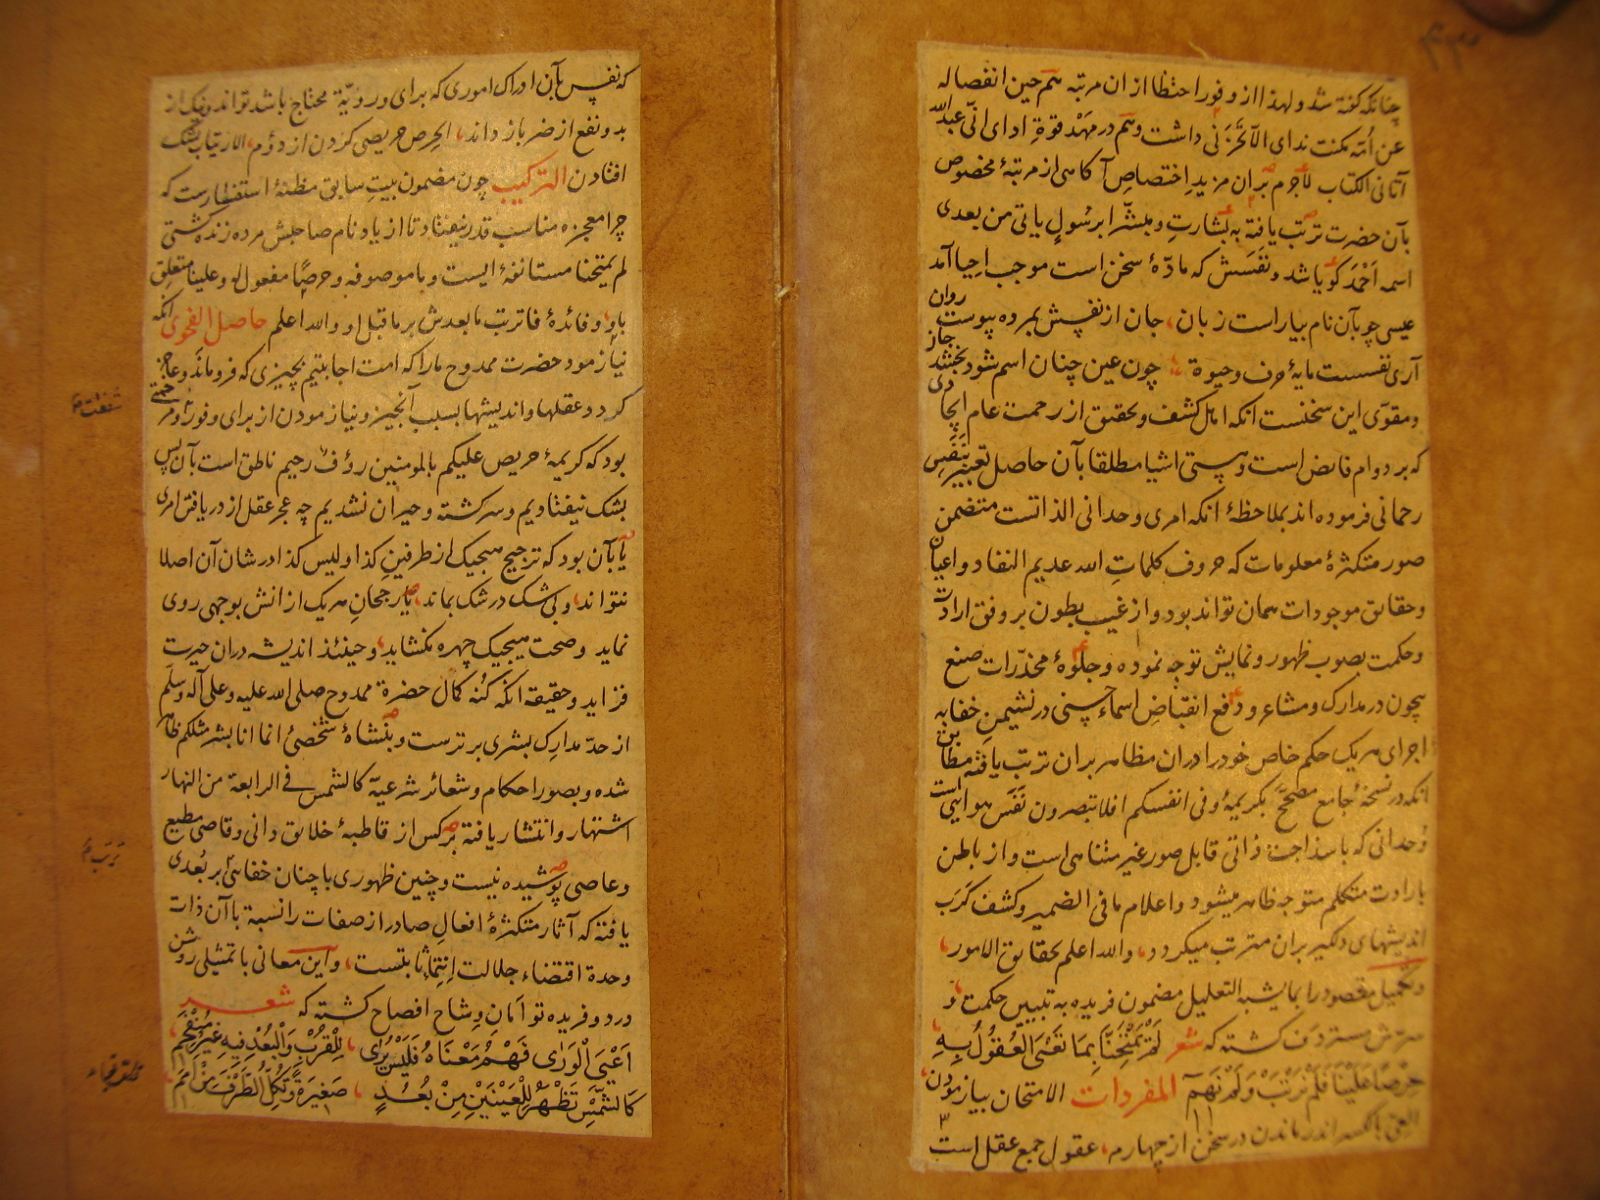 چنانکه گفته شد ولهذا از وفور احتظا از ان مرتبه هم حین انفصاله
عن امّه مکنت ندای الّا تحزنی داشت وهم در مهد قوهٔ ادای انّی عبدالله
آتانی الکتاب لاجرم بران مزید اختصاص آکاهی از مرتبهٔ مخصوص
بآن حضرت ترتب یافته به بشارت ومبشّرا برسول یاتی من بعدی
اسمه احمد کویا شد ونفسش که مادّهٔ سخن است موجب احیا آمد
عیسی چو بآن نام بیاراست زبان، جان از نفسش بمرده پیوست روان
آری نفسست مایهٔ حرف وحیوة چون عین چنان اسم شود بخشد جان
ومقوّی این سخنست انکه اهل کشف وتحقیق از رحمت عام ایجادی
که بر دوام فائض است وهستی اشیا مطلقا بآن حاصل تعبیر بنفس
رحمانی فرموده اند بملاحظهٔ انکه امری وحدانی الذاتست متضمن
صور متکثرهٔ معلومات که حروف کلمات الله عدیم النفاد واعیان
وحقائق موجودات همان تواند بود واز غیب بطون بر وفق ارادت
وحکمت بصوب ظهور ونمایش توجه نموده وجلوهٔ مخدّرات صنع
بیچون در مدارک ومشاعر ودافع انقباض اسماء حسنی در نشیمن خفا به
اجرای هر یک حکم خاص خود را در ان مظاهر بران ترتب یافته مطابق
انکه در نسخهٔ جامع مصحّح بکریمهٔ وفی انفسکم افلا تبصرون نفس هوائیست
وحدانی که باسذاجت ذاتی قابل صور غیر متناهی است واز باطن
بارادت متکلم متوجه ظاهر میشود واعلام مافی الضمیر وکشف کرب
اندیشهای دلکیر بران مترتب میکردد، والله اعلم بحقائق الامور،
وتکمیل مقصود را بما یشبه التعلیل مضمون فریده به تبیین حکمت و
سرّش مستردف کشته که شعر لَمْ يَمْتَحِنَّا بِمَا تَعْيَى الْعُقُولُ بِهِ
حِرْصًا عَلَيْنَا فَلَمْ نَرْتَبْ وَلَمْ نَهِمِ المفردات الامتحان بیازمودن،
العیّ بالکسر اندر ماندن در سخن از چهارم، عقول جمع عقل است
که نفس بآن ادراک اموری که برای ورویّة محتاج باشد تواند ونیک از
بد ونفع از ضر باز داند، الحرص حریصی کردن از دوم، الارتیاب بشک
افتادن الترکیب چون مضمون بیت سابق مظنهٔ استفسارست که
چرا معجزه مناسب قدر نیفتاد تا از یاد نام صاحبش مرده زنده کشتی
لم یمتحنا مستانفهٔ ایست وما موصوفه وحرصًا مفعول له وعلینا متعلق
باو، وفائدهٔ فا ترتب مابعدش بر ماقبل او والله اعلم حاصل الفحوی انکه
نیازمود حضرت ممدوح ما را که امت اجابتیم بچیزی که فروماند وعاجز
کردد عقلها واندیشها بسبب آنچیز ونیازمودن از برای وفور ومرحمتی
بود که کریمهٔ حریص علیکم بالمومنین رؤف رحیم ناطق است بآن پس
بشک نیفتادیم وسرکشته وحیران نشدیم چه عجز عقل از دریافتن امری
یا بآن بود که ترجیح هیچیک از طرفین کذا ولیس کذا در شان آن اصلا
نتواند، وبی شک در شک بماند، یا رجحان هر یک ازانش بوجهی روی
نماید وصحت هیچیک چهره نکشاید، وحینئذ اندیشه دران حیرت
فزاید وحقیقة انکه کنه کمال حضرة ممدوح صلی الله علیه وعلی آله وسلم
از حدّ مدارک بشری برترست وبنشاهٔ شخصیٔ انما انا بشر مثلکم ظاهر
شده وبصور احکام وشعائر شرعیّه کالشمس فی الرابعة من النهار
اشتهار وانتشار یافته بر کس از قاطبهٔ خلائق دانی وقاصی مطیع
وعاصی پوشیده نیست وچنین ظهوری باچنان خفائی بر بُعدی
یافته که آثار متکثرهٔ افعال صادر از صفات را نسبة باآن ذات
وحدة اقتضاء جلالت انتما ثابتست، واین معانی باتمثیلی روشن
ورد وفریده توأمان وشاح افصاح کشته که شعر
اَعْيَى الْوَرٰى فَهْمُ مَعْنَاهُ فَلَيْسَ يُرٰى، لِلْقُرْبِ وَالْبُعْدِ فِيهِ غَيْرُ مُنْفَحِمِ
كَالشَّمْسِ تَظْهَرُ لِلْعَيْنَيْنِ مِنْ بُعُدٍ، صَغِيرَةً وَتُكِلُّ الطَّرْفَ مِنْ اَمَمِ